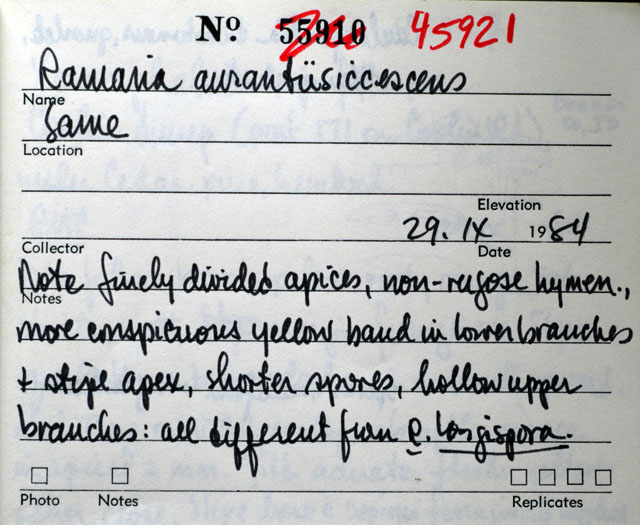 Nº 55910 45921
Ramaria aurantiisiccescens
Name
Same
Location
Elevation
29. IX 1984
Collector Date
Note finely divided apices, non-rugose hymen.,
Notes
more conspicuous yellow band in lower branches
+ stipe apex, shorter spores, hollow upper
branches: all different from R. longispora.
Photo Notes Replicates